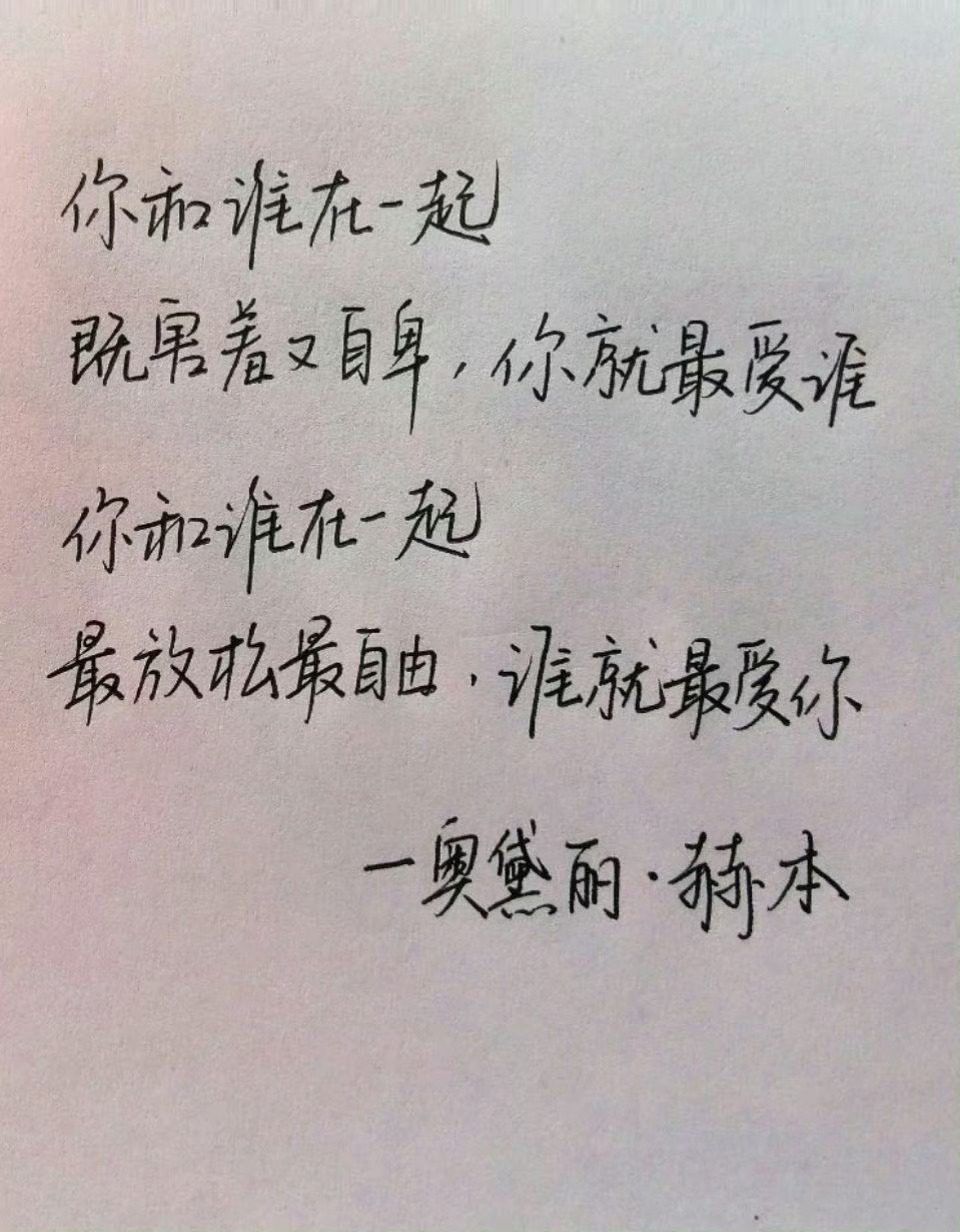 你和谁在一起
既害羞又自卑，你就最爱谁
你和谁在一起
最放松最自由，谁就最爱你
一奥黛丽·赫本